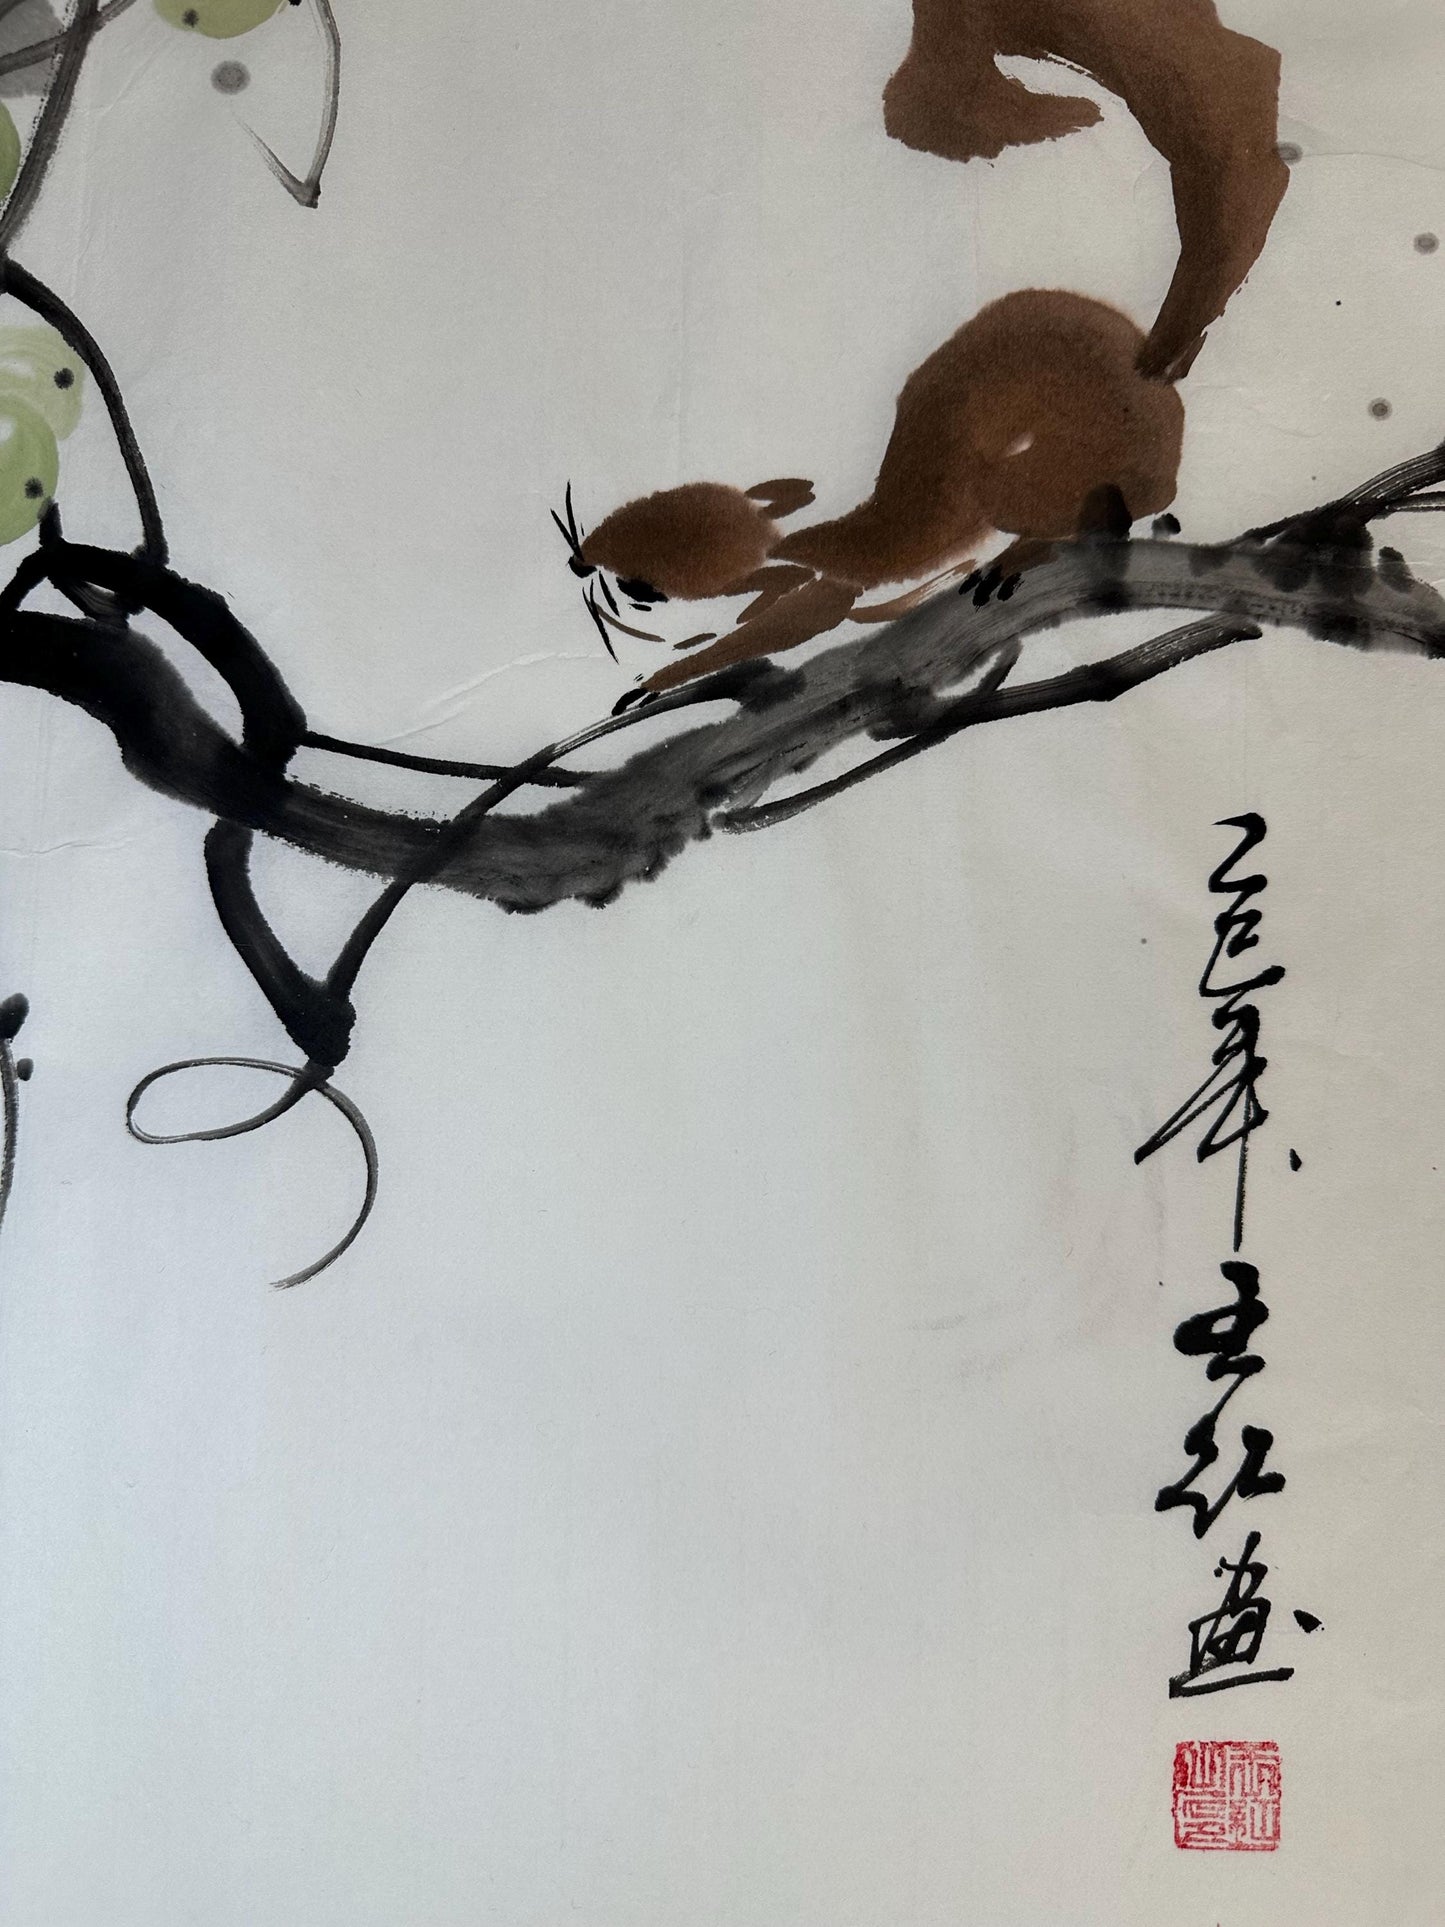 乙巳年
王红画